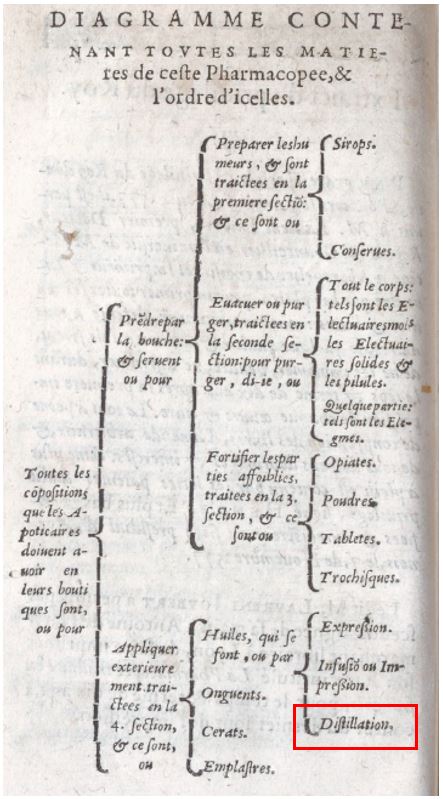 DIAGRAMME CONTE-
NANT TOVTES LES MATIE-
res de ceste Pharmacopee, &
l'ordre d'icelles.
Toutes les
cōpositions
que les A-
poticaires
doiuent a-
uoir en
leurs bouti
ques sont,
ou pour
Prēdre par
la bouche:
& seruent
ou pour
Preparer les hu
meurs, & sont
traictees en la
premiere sectiō:
& ce sont ou
Sirops.
Conserues.
Euacuer ou pur
ger, traictees en
la seconde se-
ction: pour pur-
ger, di-ie, ou
Tout le corps:
tels sont les E-
lectuaires mois
les Electuai-
res solides &
les pilules.
Quelque partie:
tels sont les Ele-
gmes.
Fortifier les par
ties affoiblies,
traitees en la 3.
section, & ce
sont ou
Opiates.
Poudres.
Tabletes.
Trochisques.
Appliquer
exterieure
ment, trai-
ctees en la
4. section,
& ce sont,
ou
Huiles, qui se
font, ou par
Expression.
Infusiō ou Im-
pression.
Distillation.
Onguents.
Cerats.
Emplastres.